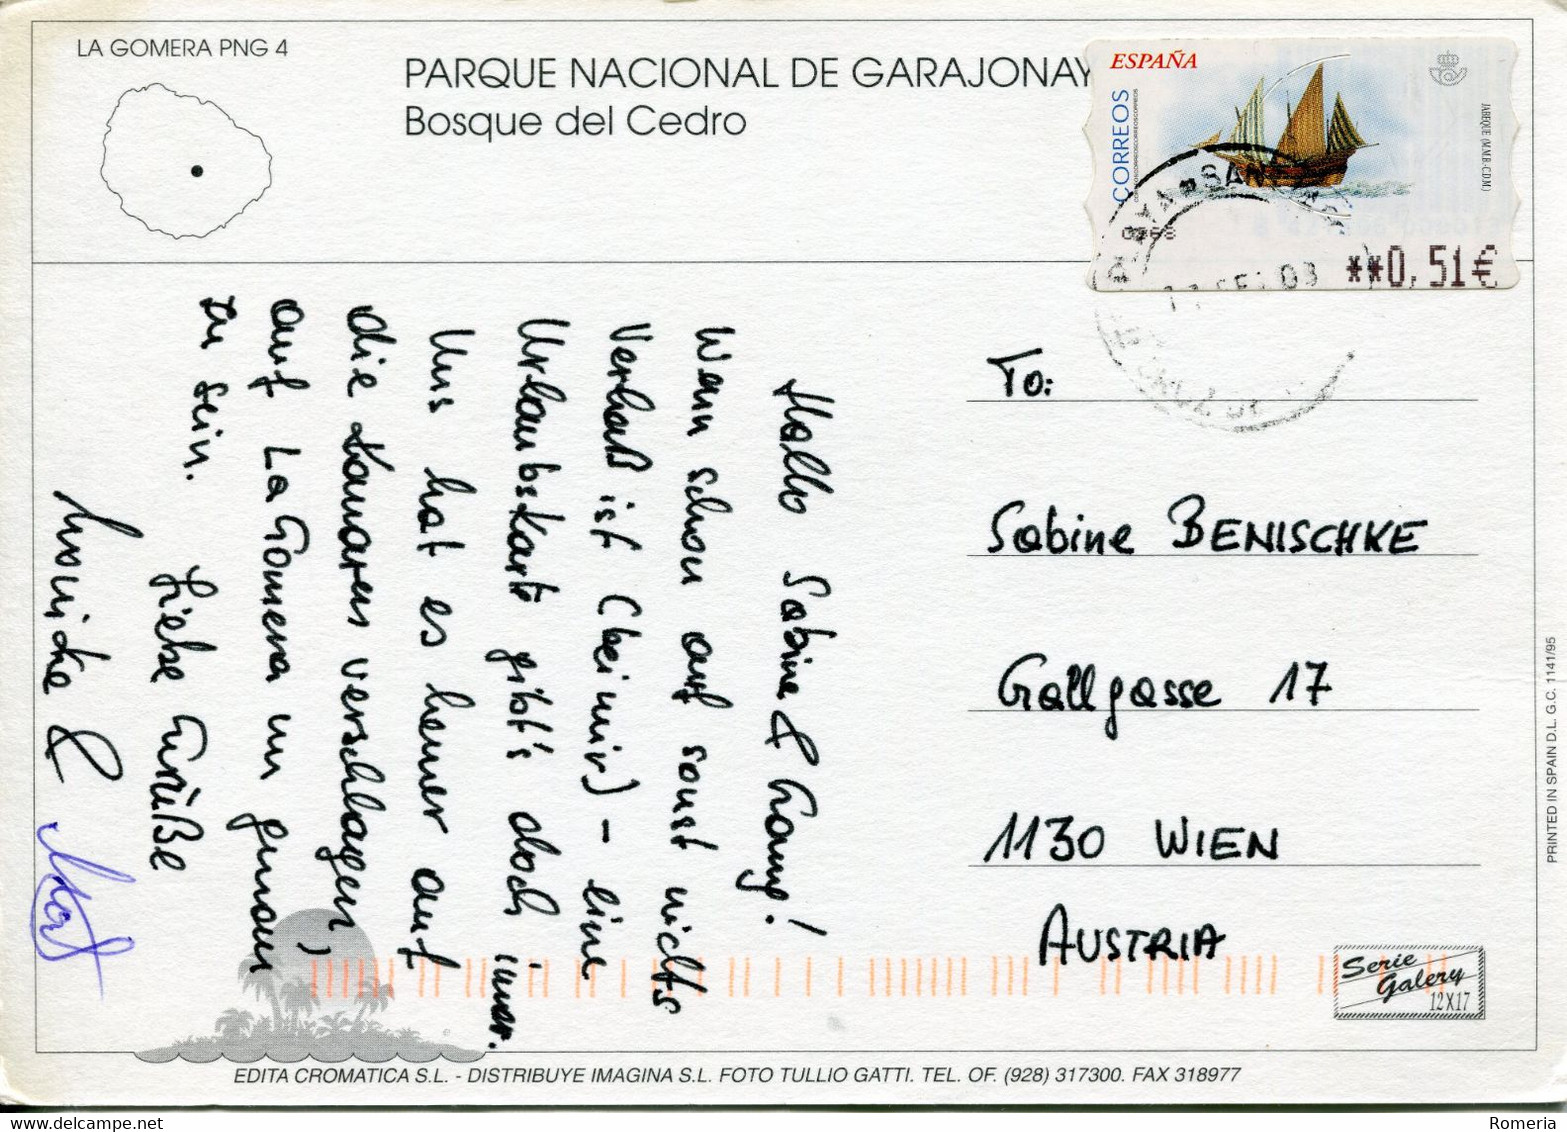 LA GOMERA PNG 4
PARQUE NACIONAL DE GARAJONAY
Bosque del Cedro
ESPAÑA
CORREOS
JABEQUE (M.M.B-C.D.M.)
**0,51€
Hallo Sabine &
Wenn schon auf sonst nichts
Verlaß ist (bei mir) - eine
Urlaubskarte gibt's doch immer.
Uns hat es heuer auf
die Kanaren verschlagen,
auf La Gomera um genau
zu sein.
Liebe Grüße
&
To:
Sabine BENISCHKE
Gallgasse 17
1130 WIEN
AUSTRIA
Serie
Galery
12X17
PRINTED IN SPAIN D.L. G.C. 1141/95
EDITA CROMATICA S.L. - DISTRIBUYE IMAGINA S.L. FOTO TULLIO GATTI. TEL. OF. (928) 317300. FAX 318977
Romeria